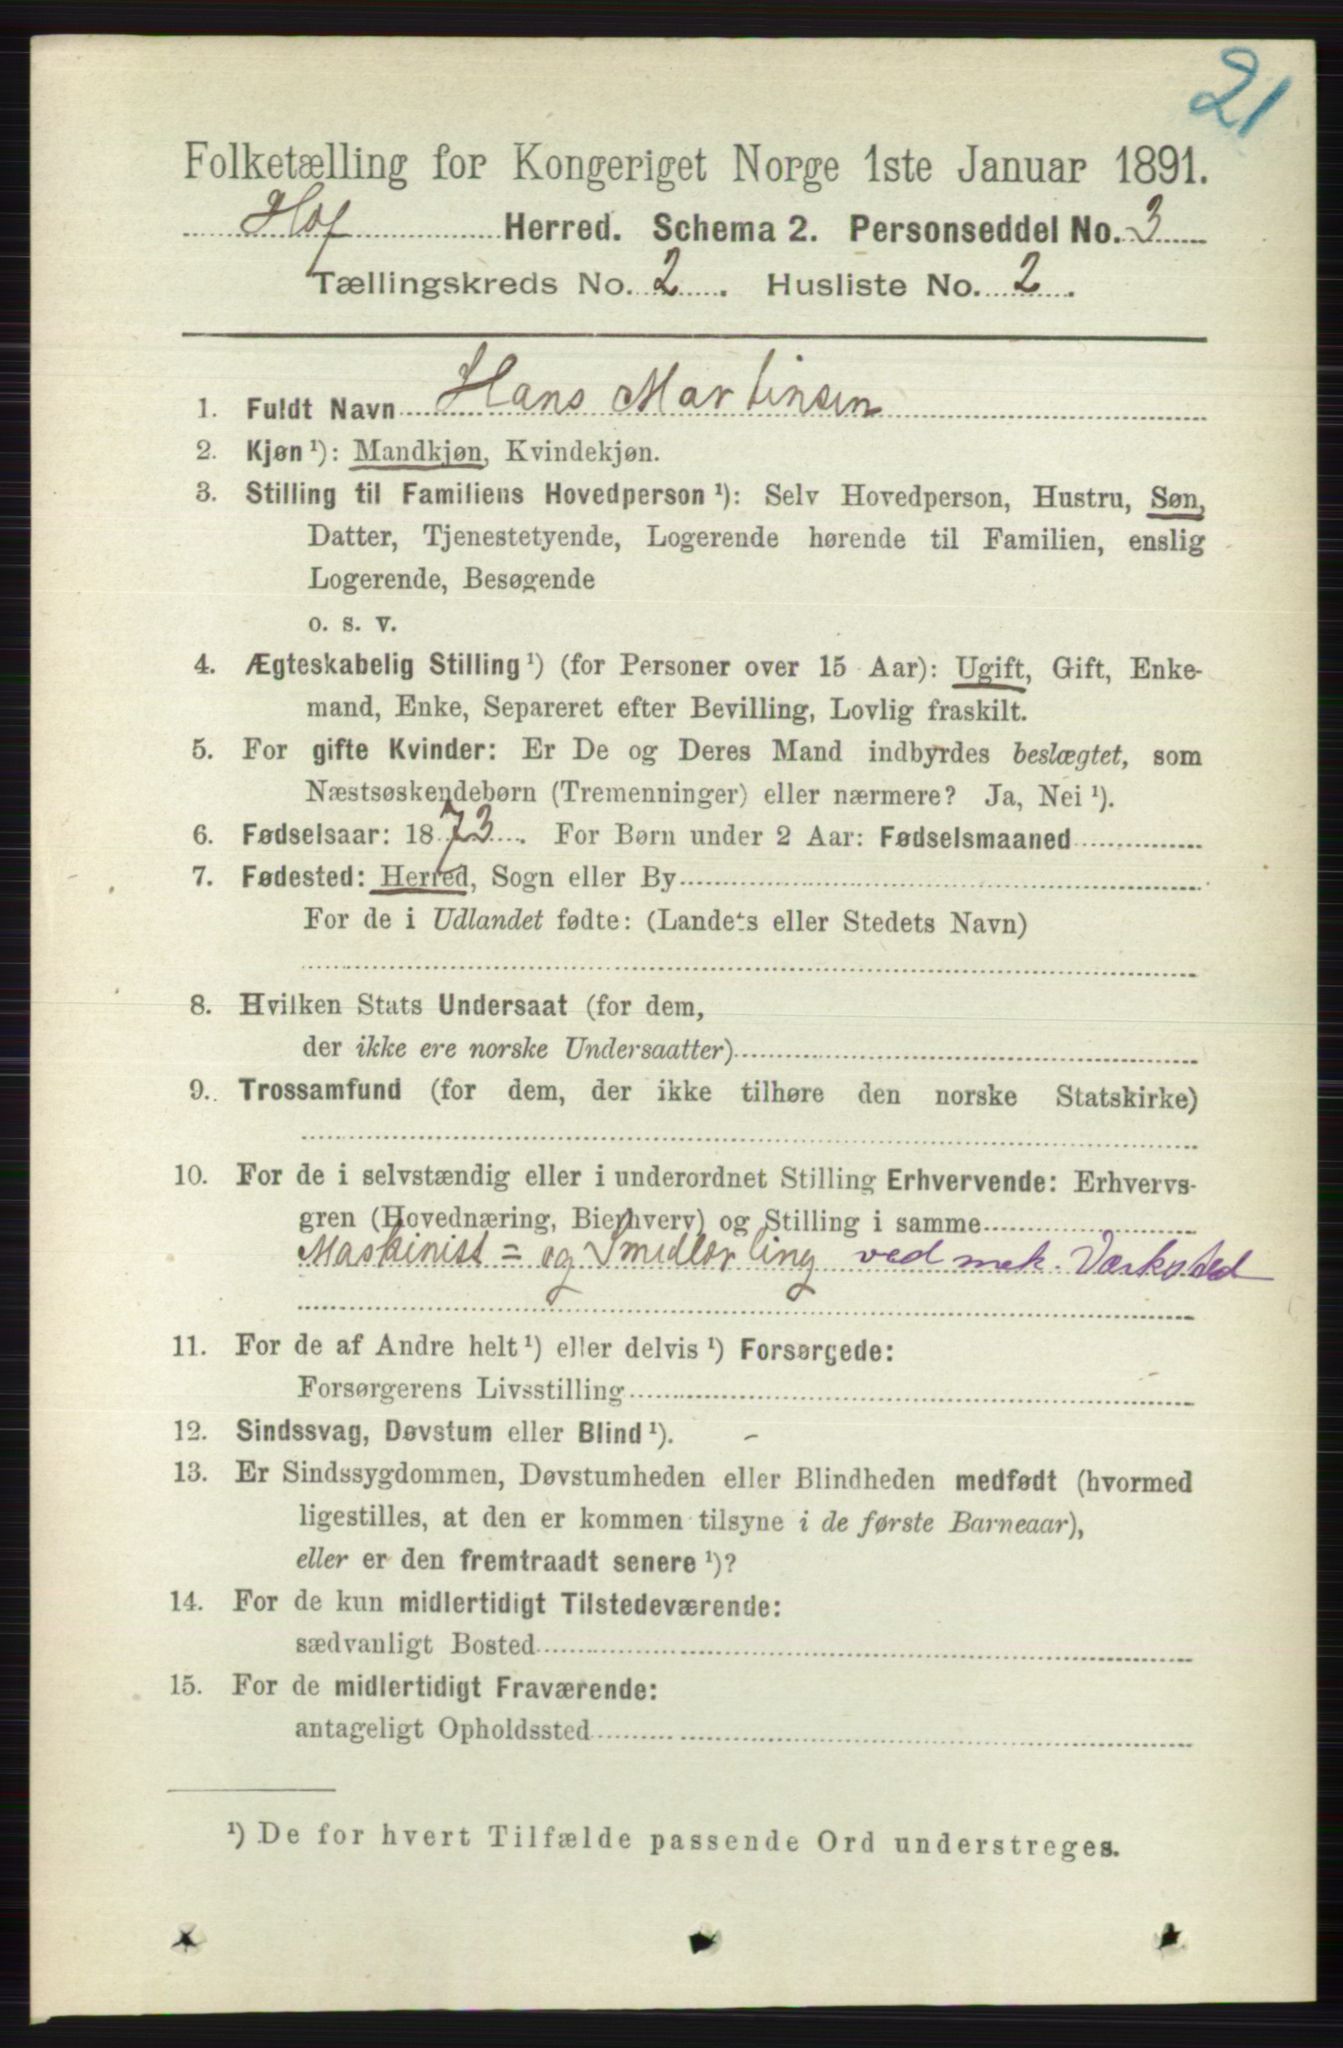 21
Folketælling for Kongeriget Norge 1ste Januar 1891.
Hof Herred. Schema 2. Personseddel No. 3
Tællingskreds No. 2. Husliste No. 2.
1. Fuldt Navn Hans Martinsen
2. Kjøn¹): Mandkjøn, Kvindekjøn.
3. Stilling til Familiens Hovedperson¹): Selv Hovedperson, Hustru, Søn,
Datter, Tjenestetyende, Logerende hørende til Familien, enslig
Logerende, Besøgende
o. s. v.
4. Ægteskabelig Stilling¹) (for Personer over 15 Aar): Ugift, Gift, Enke-
mand, Enke, Separeret efter Bevilling, Lovlig fraskilt.
5. For gifte Kvinder: Er De og Deres Mand indbyrdes beslægtet, som
Næstsøskendebørn (Tremenninger) eller nærmere? Ja, Nei¹).
6. Fødselsaar: 1873. For Børn under 2 Aar: Fødselsmaaned
7. Fødested: Herred, Sogn eller By
For de i Udlandet fødte: (Landets eller Stedets Navn)
8. Hvilken Stats Undersaat (for dem,
der ikke ere norske Undersaatter)
9. Trossamfund (for dem, der ikke tilhøre den norske Statskirke)
10. For de i selvstændig eller i underordnet Stilling Erhvervende: Erhvervs-
gren (Hovednæring, Bierhverv) og Stilling i samme
Maskinist= og Smedlærling ved mek. Værksted
11. For de af Andre helt¹) eller delvis¹) Forsørgede:
Forsørgerens Livsstilling
12. Sindssvag, Døvstum eller Blind¹). -
13. Er Sindssygdommen, Døvstumheden eller Blindheden medfødt (hvormed
ligestilles, at den er kommen tilsyne i de første Barneaar),
eller er den fremtraadt senere¹)?
14. For de kun midlertidigt Tilstedeværende:
sædvanligt Bosted
15. For de midlertidigt Fraværende:
antageligt Opholdssted
¹) De for hvert Tilfælde passende Ord understreges.